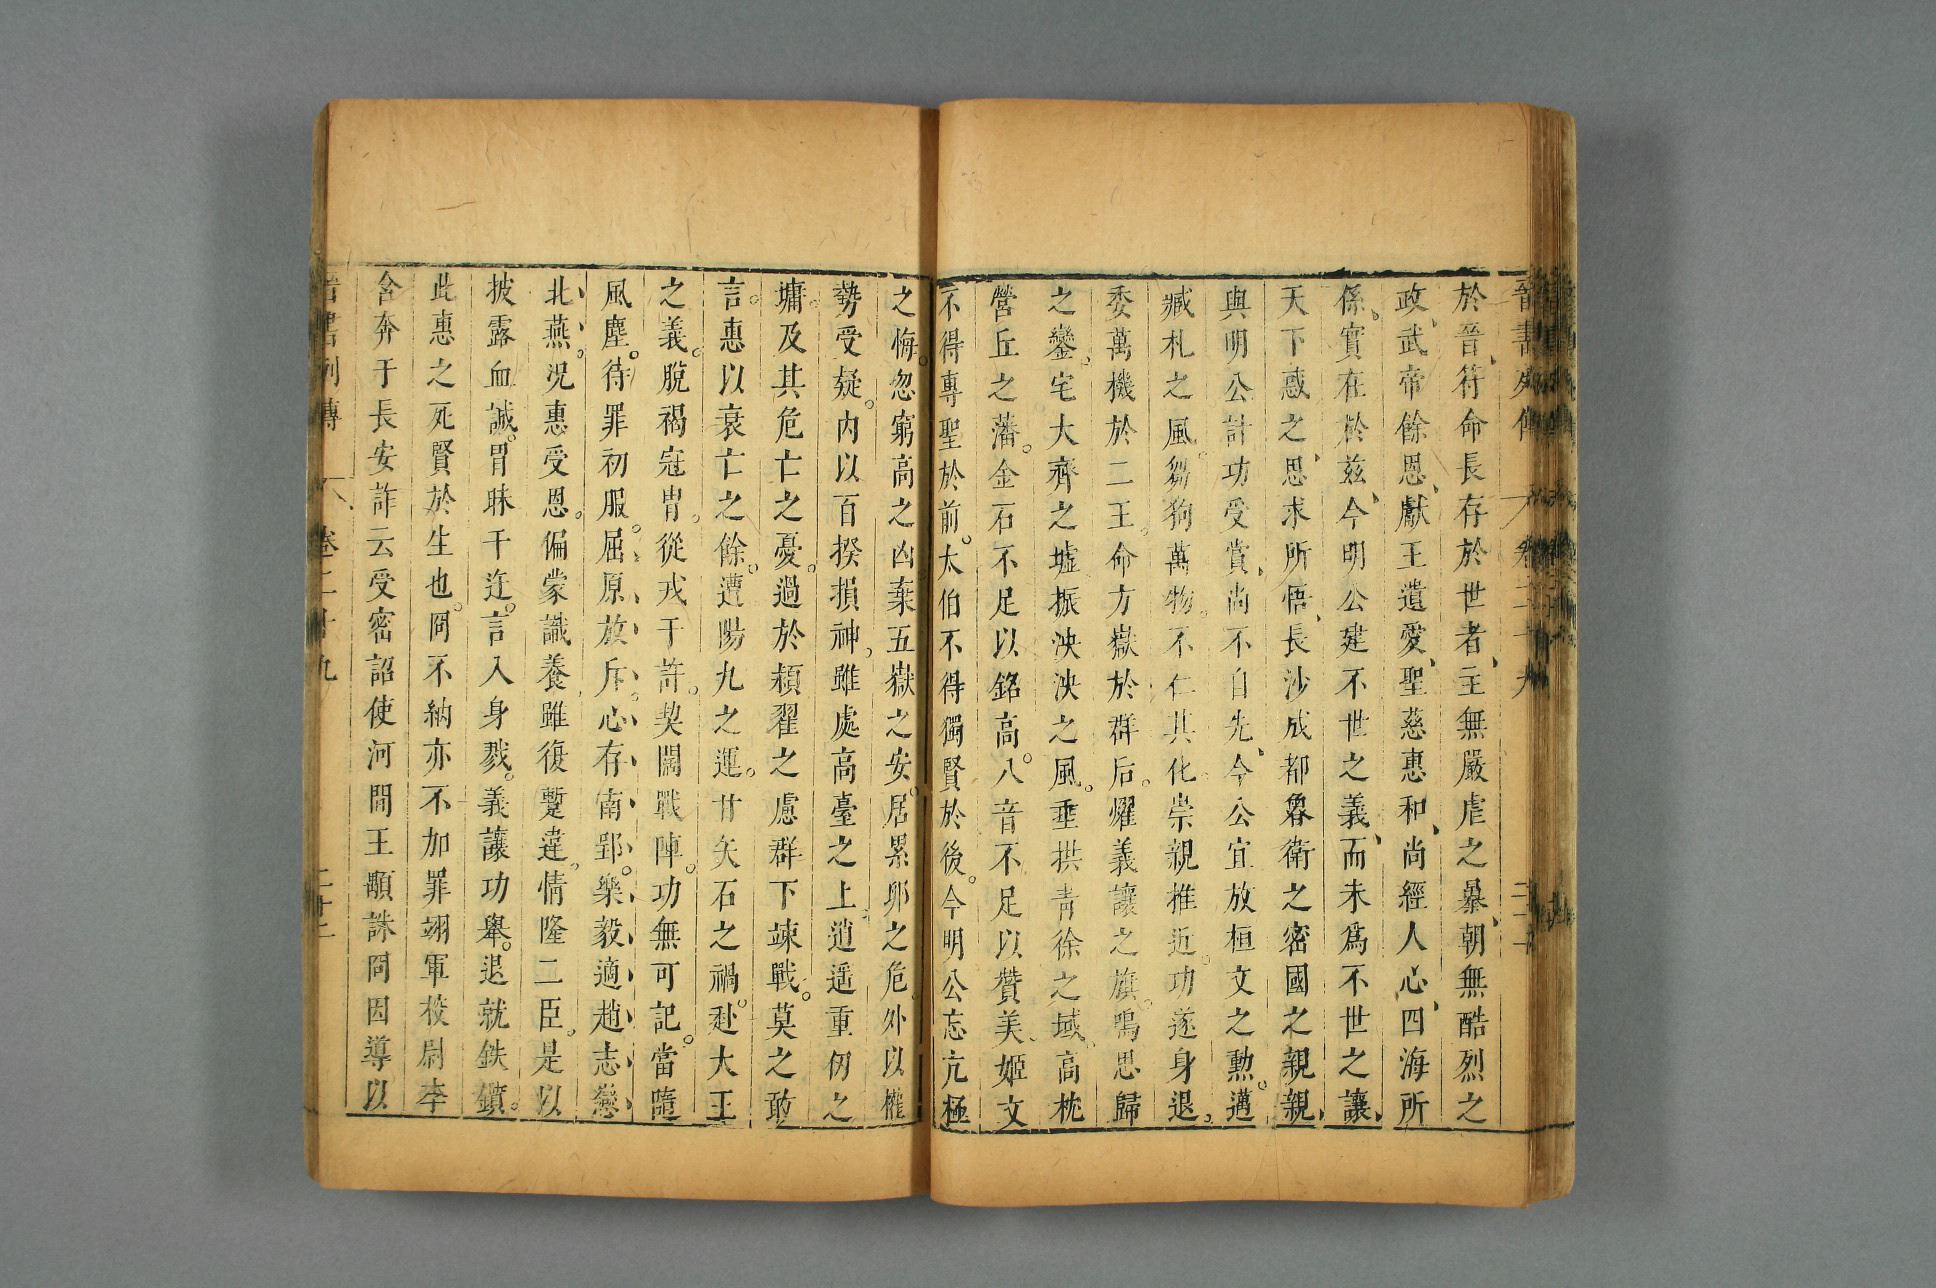 晉書列傳 卷二十九
於晉、符命長存於世者、主無嚴虐之暴、朝無酷烈之
政、武帝餘恩、獻王遺愛、聖慈惠和、尚經人心、四海所
係、實在於茲、今明公建不世之義、而未爲不世之讓、
天下惑之、思求所悟、長沙成都魯衛之密國之親親、
與明公計功受賞、尚不自先、今公宜放桓文之勲。邁
臧札之風。芻狗萬物。不仁其化。崇親推近。功遂身退。
委萬機於二王。命方嶽於群后。耀義讓之旗。鳴思歸
之鑾。宅大齊之墟振泱泱之風。垂拱青徐之域、高枕
營丘之藩。金石不足以銘高。八音不足以贊美、姬文
不得專聖於前。太伯不得獨賢於後。今明公忘亢極
之悔。忽窮高之凶棄五嶽之安。居累卵之危。外以權
勢受疑。內以百揆損神、雖處高臺之上逍遥重仞之
墉。及其危亡之憂。過於潁翟之慮群下竦戰。莫之敢
言。惠以衰亡之餘。遭陽九之運。甘矢石之禍。赴大王
之義。脫褐冠冑。從戎于許。契闊戰陣。功無可記。當隨
風塵。待罪初服。屈原放斥、心存南郢。樂毅適趙、志戀
北燕、況惠受恩。偏蒙識養、雖復蹔違。情隆二臣。是以
披露血誠。冒昧干迕。言入身戮。義讓功舉。退就鈇鑕。
此惠之死賢於生也。冏不納亦不加罪翊軍校尉李
含奔于長安詐云受密詔使河間王顒誅冏因導以
晉書列傳 卷二十九 二十二